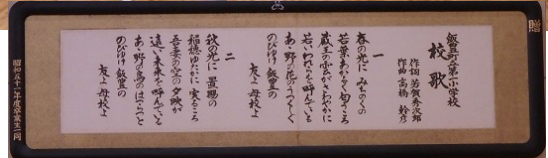 飯豊町立第一小学校
校歌
作詞 芳賀秀次郎
作曲 高橋 幹彦
一
春の光に みちのくの
若葉あかるく匂うころ
蔵王の雲がさわやかに
若いわれらを呼んでいる
あゝ野の花の
のびゆけ 飯豊の
友よ 母校よ
二
秋の光に 置賜の
稲穂ゆたかに 実るころ
吾妻の空の 夕映が
遠い未来を呼んでいる
あゝ野の鳥の
のびゆけ 飯豊の
友よ 母校よ
昭和五十一年度卒業生一同
贈